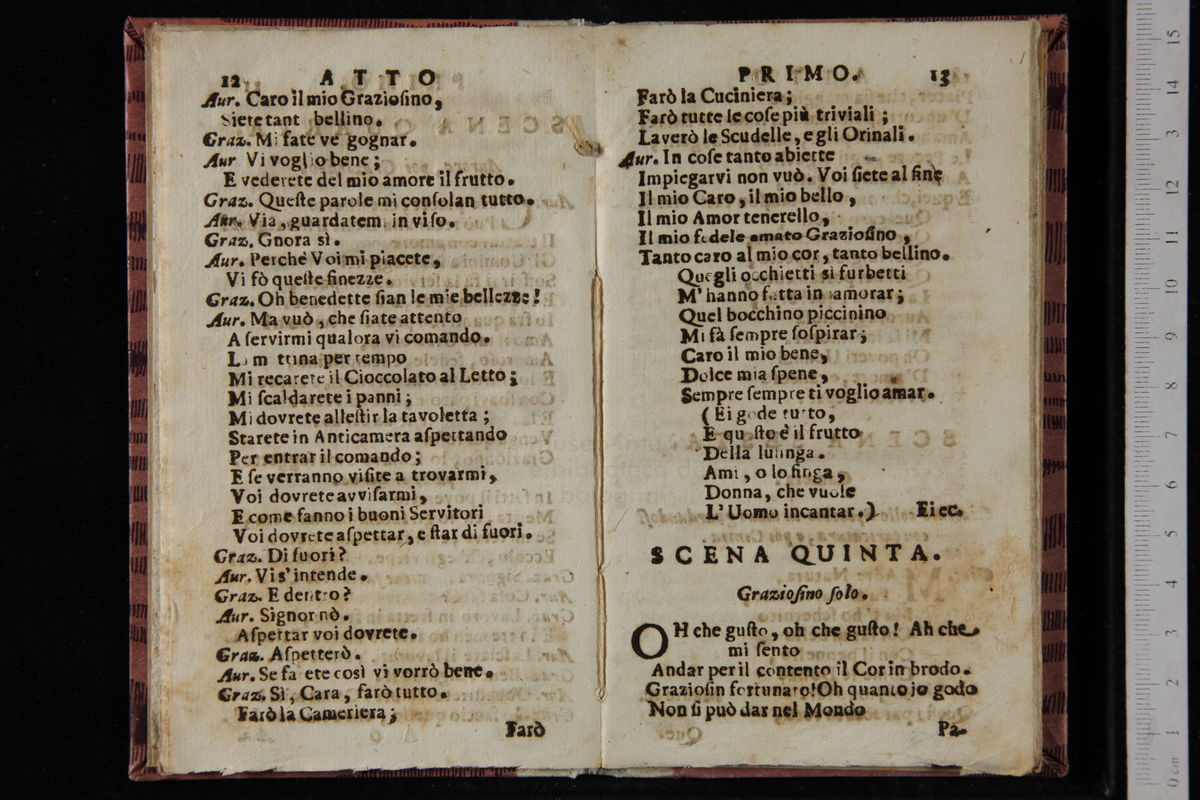 12 ATTO
Aur. Caro il mio Graziosino,
Siete tant bellino.
Graz. Mi fate ve gognar.
Aur Vi voglio bene;
E vederete del mio amore il frutto.
Graz. Queſte parole mi conſolan tutto.
Aur. Via, guardatemi in viſo.
Graz. Gnora sì.
Aur. Perchè Voi mi piacete,
Vi fò queſte finezze.
Graz. Oh benedette ſian le mie bellezze!
Aur. Ma vuò, che ſiate attento
A ſervirmi qualora vi comando.
La m ttina per tempo
Mi recarete il Cioccolato al Letto;
Mi ſcaldarete i panni;
Mi dovrete alleſtir la tavoletta;
Starete in Anticamera aſpettando
Per entrar il comando;
E ſe verranno viſite a trovarmi,
Voi dovrete avviſarmi,
E come fanno i buoni Servitori
Voi dovrete aſpettar, e ſtar di fuori.
Graz. Di fuori?
Aur. Vi s' intende.
Graz. E dentro?
Aur. Signor nò.
Aſpettar voi dovrete.
Graz. Aſpetterò.
Aur. Se fa ete così vi vorrò bene.
Graz. Sì, Cara, farò tutto.
Farò la Cameriera;
Farò
PRIMO. 13
Farò la Cuciniera;
Farò tutte le coſe più triviali;
Laverò le Scudelle, e gli Orinali.
Aur. In coſe tanto abiette
Impiegarvi non vuò. Voi ſiete al fine
Il mio Caro, il mio bello,
Il mio Amor tenerello,
Il mio fedele amato Graziosino,
Tanto caro al mio cor, tanto bellino.
Quegli occhietti sì furbetti
M' hanno fatta innamorar;
Quel bocchino piccinino
Mi fà ſempre ſoſpirar;
Caro il mio bene,
Dolce mia ſpene,
Sempre ſempre ti voglio amar.
(Ei gode tutto,
E queſto è il frutto
Della luſinga.
Ami, o lo finga,
Donna, che vuole
L' Uomo incantar.) Ei ec.
SCENA QUINTA.
Graziosino ſolo.
OH che guſto, oh che guſto! Ah che
mi ſento
Andar per il contento il Cor in brodo.
Graziosin fortunato! Oh quanto io godo
Non ſi può dar nel Mondo
Pa-